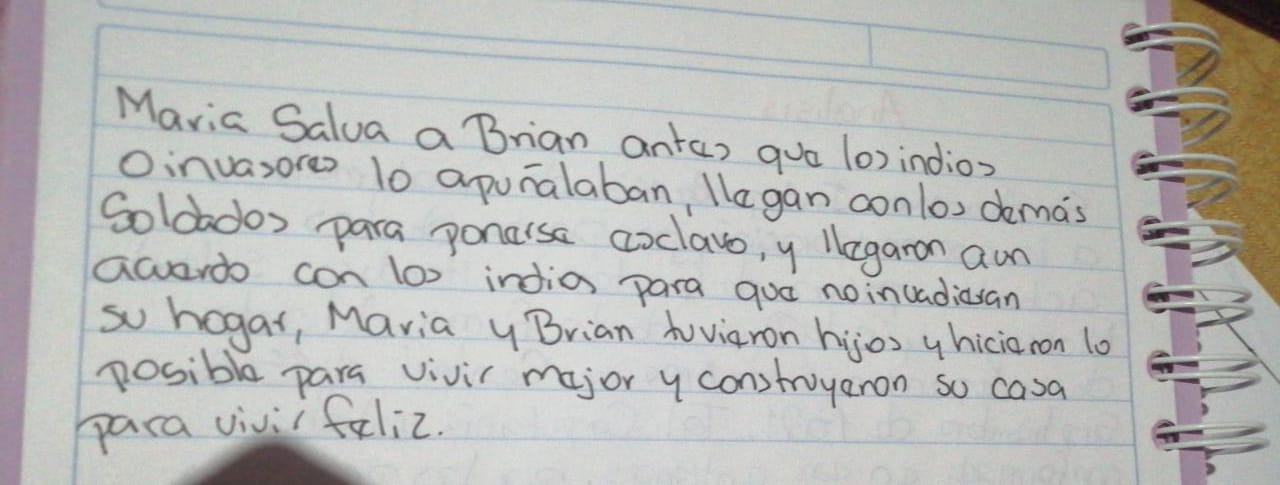 Maria Salva a Brian antes que los indios
o invasores lo apuñalaban, llegan con los demás
Soldados para ponerse esclavo, y llegaron aun
acuerdo con los indios para que no invadieran
su hogar, Maria y Brian tuvieron hijos y hicieron lo
posible para vivir mejor y construyeron su casa
para vivir feliz.